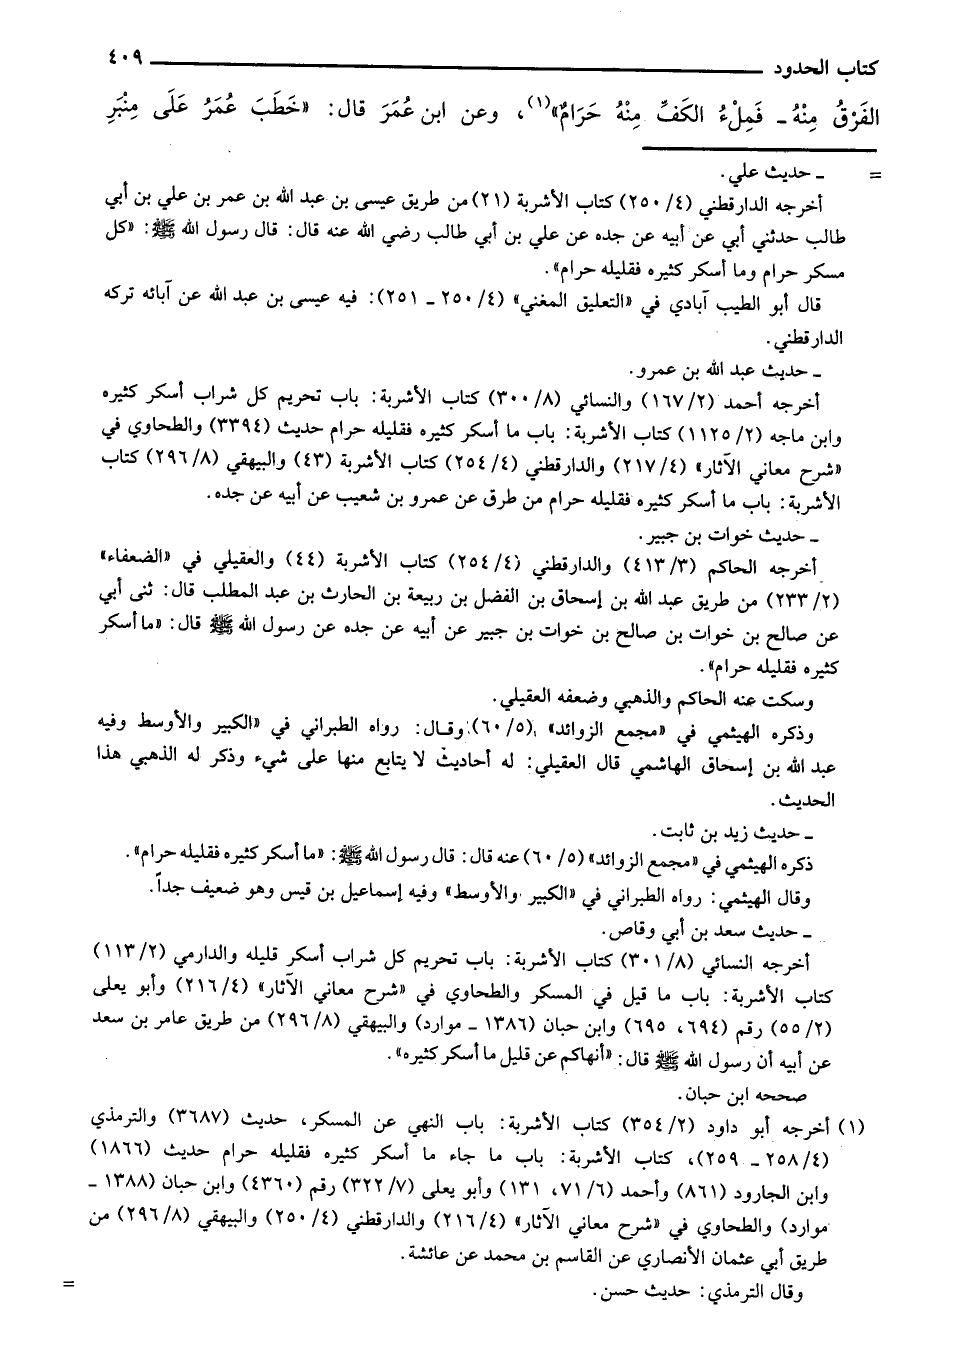 كتاب الحدود ٤٠٩
الفَرْقُ مِنْهُ ـ فَمِلْءُ الكَفِّ مِنْهُ حَرَامٌ»(١)، وعن ابن عُمَرَ قال: «خَطَبَ عُمَرُ عَلَى مِنْبَرِ
= ـ حديث علي.
أخرجه الدارقطني (٤/ ٢٥٠) كتاب الأشربة (٢١) من طريق عيسى بن عبد الله بن عمر بن علي بن أبي
طالب حدثني أبي عن أبيه عن جده عن علي بن أبي طالب رضي الله عنه قال: قال رسول الله ﷺ: «كل
مسكر حرام وما أسكر كثيره فقليله حرام».
قال أبو الطيب آبادي في «التعليق المغني» (٤/ ٢٥٠ ـ ٢٥١): فيه عيسى بن عبد الله عن آبائه تركه
الدارقطني.
ـ حديث عبد الله بن عمرو.
أخرجه أحمد (٢/ ١٦٧) والنسائي (٨/ ٣٠٠) كتاب الأشربة: باب تحريم كل شراب أسكر كثيره
وابن ماجه (٢/ ١١٢٥) كتاب الأشربة: باب ما أسكر كثيره فقليله حرام حديث (٣٣٩٤) والطحاوي في
«شرح معاني الآثار» (٤/ ٢١٧) والدارقطني (٤/ ٢٥٤) كتاب الأشربة (٤٣) والبيهقي (٨/ ٢٩٦) كتاب
الأشربة: باب ما أسكر كثيره فقليله حرام من طرق عن عمرو بن شعيب عن أبيه عن جده.
ـ حديث خوات بن جبير.
أخرجه الحاكم (٣/ ٤١٣) والدارقطني (٤/ ٢٥٤) كتاب الأشربة (٤٤) والعقيلي في «الضعفاء»
(٢/ ٢٣٣) من طريق عبد الله بن إسحاق بن الفضل بن ربيعة بن الحارث بن عبد المطلب قال: ثنى أبي
عن صالح بن خوات بن صالح بن خوات بن جبير عن أبيه عن جده عن رسول الله ﷺ قال: «ما أسكر
كثيره فقليله حرام».
وسكت عنه الحاكم والذهبي وضعفه العقيلي.
وذكره الهيثمي في «مجمع الزوائد» (٥/ ٦٠) وقال: رواه الطبراني في «الكبير والأوسط وفيه
عبد الله بن إسحاق الهاشمي قال العقيلي: له أحاديث لا يتابع منها على شيء وذكر له الذهبي هذا
الحديث.
ـ حديث زيد بن ثابت.
ذكره الهيثمي في «مجمع الزوائد» (٥/ ٦٠) عنه قال: قال رسول الله ﷺ: «ما أسكر كثيره فقليله حرام».
وقال الهيثمي: رواه الطبراني في «الكبير والأوسط» وفيه إسماعيل بن قيس وهو ضعيف جداً.
ـ حديث سعد بن أبي وقاص.
أخرجه النسائي (٨/ ٣٠١) كتاب الأشربة: باب تحريم كل شراب أسكر قليله والدارمي (٢/ ١١٣)
كتاب الأشربة: باب ما قيل في المسكر والطحاوي في «شرح معاني الآثار» (٤/ ٢١٦) وأبو يعلى
(٢/ ٥٥) رقم (٦٩٤، ٦٩٥) وابن حبان (١٣٨٦ ـ موارد) والبيهقي (٨/ ٢٩٦) من طريق عامر بن سعد
عن أبيه أن رسول الله ﷺ قال: «أنهاكم عن قليل ما أسكر كثيره».
صححه ابن حبان.
(١) أخرجه أبو داود (٢/ ٣٥٤) كتاب الأشربة: باب النهي عن المسكر، حديث (٣٦٨٧) والترمذي
(٤/ ٢٥٨ ـ ٢٥٩)، كتاب الأشربة: باب ما جاء ما أسكر كثيره فقليله حرام حديث (١٨٦٦)
وابن الجارود (٨٦١) وأحمد (٦/ ٧١، ١٣١) وأبو يعلى (٧/ ٣٢٢) رقم (٤٣٦٠) وابن حبان (١٣٨٨ ـ
موارد) والطحاوي في «شرح معاني الآثار» (٤/ ٢١٦) والدارقطني (٤/ ٢٥٠) والبيهقي (٨/ ٢٩٦) من
طريق أبي عثمان الأنصاري عن القاسم بن محمد عن عائشة.
وقال الترمذي: حديث حسن. =